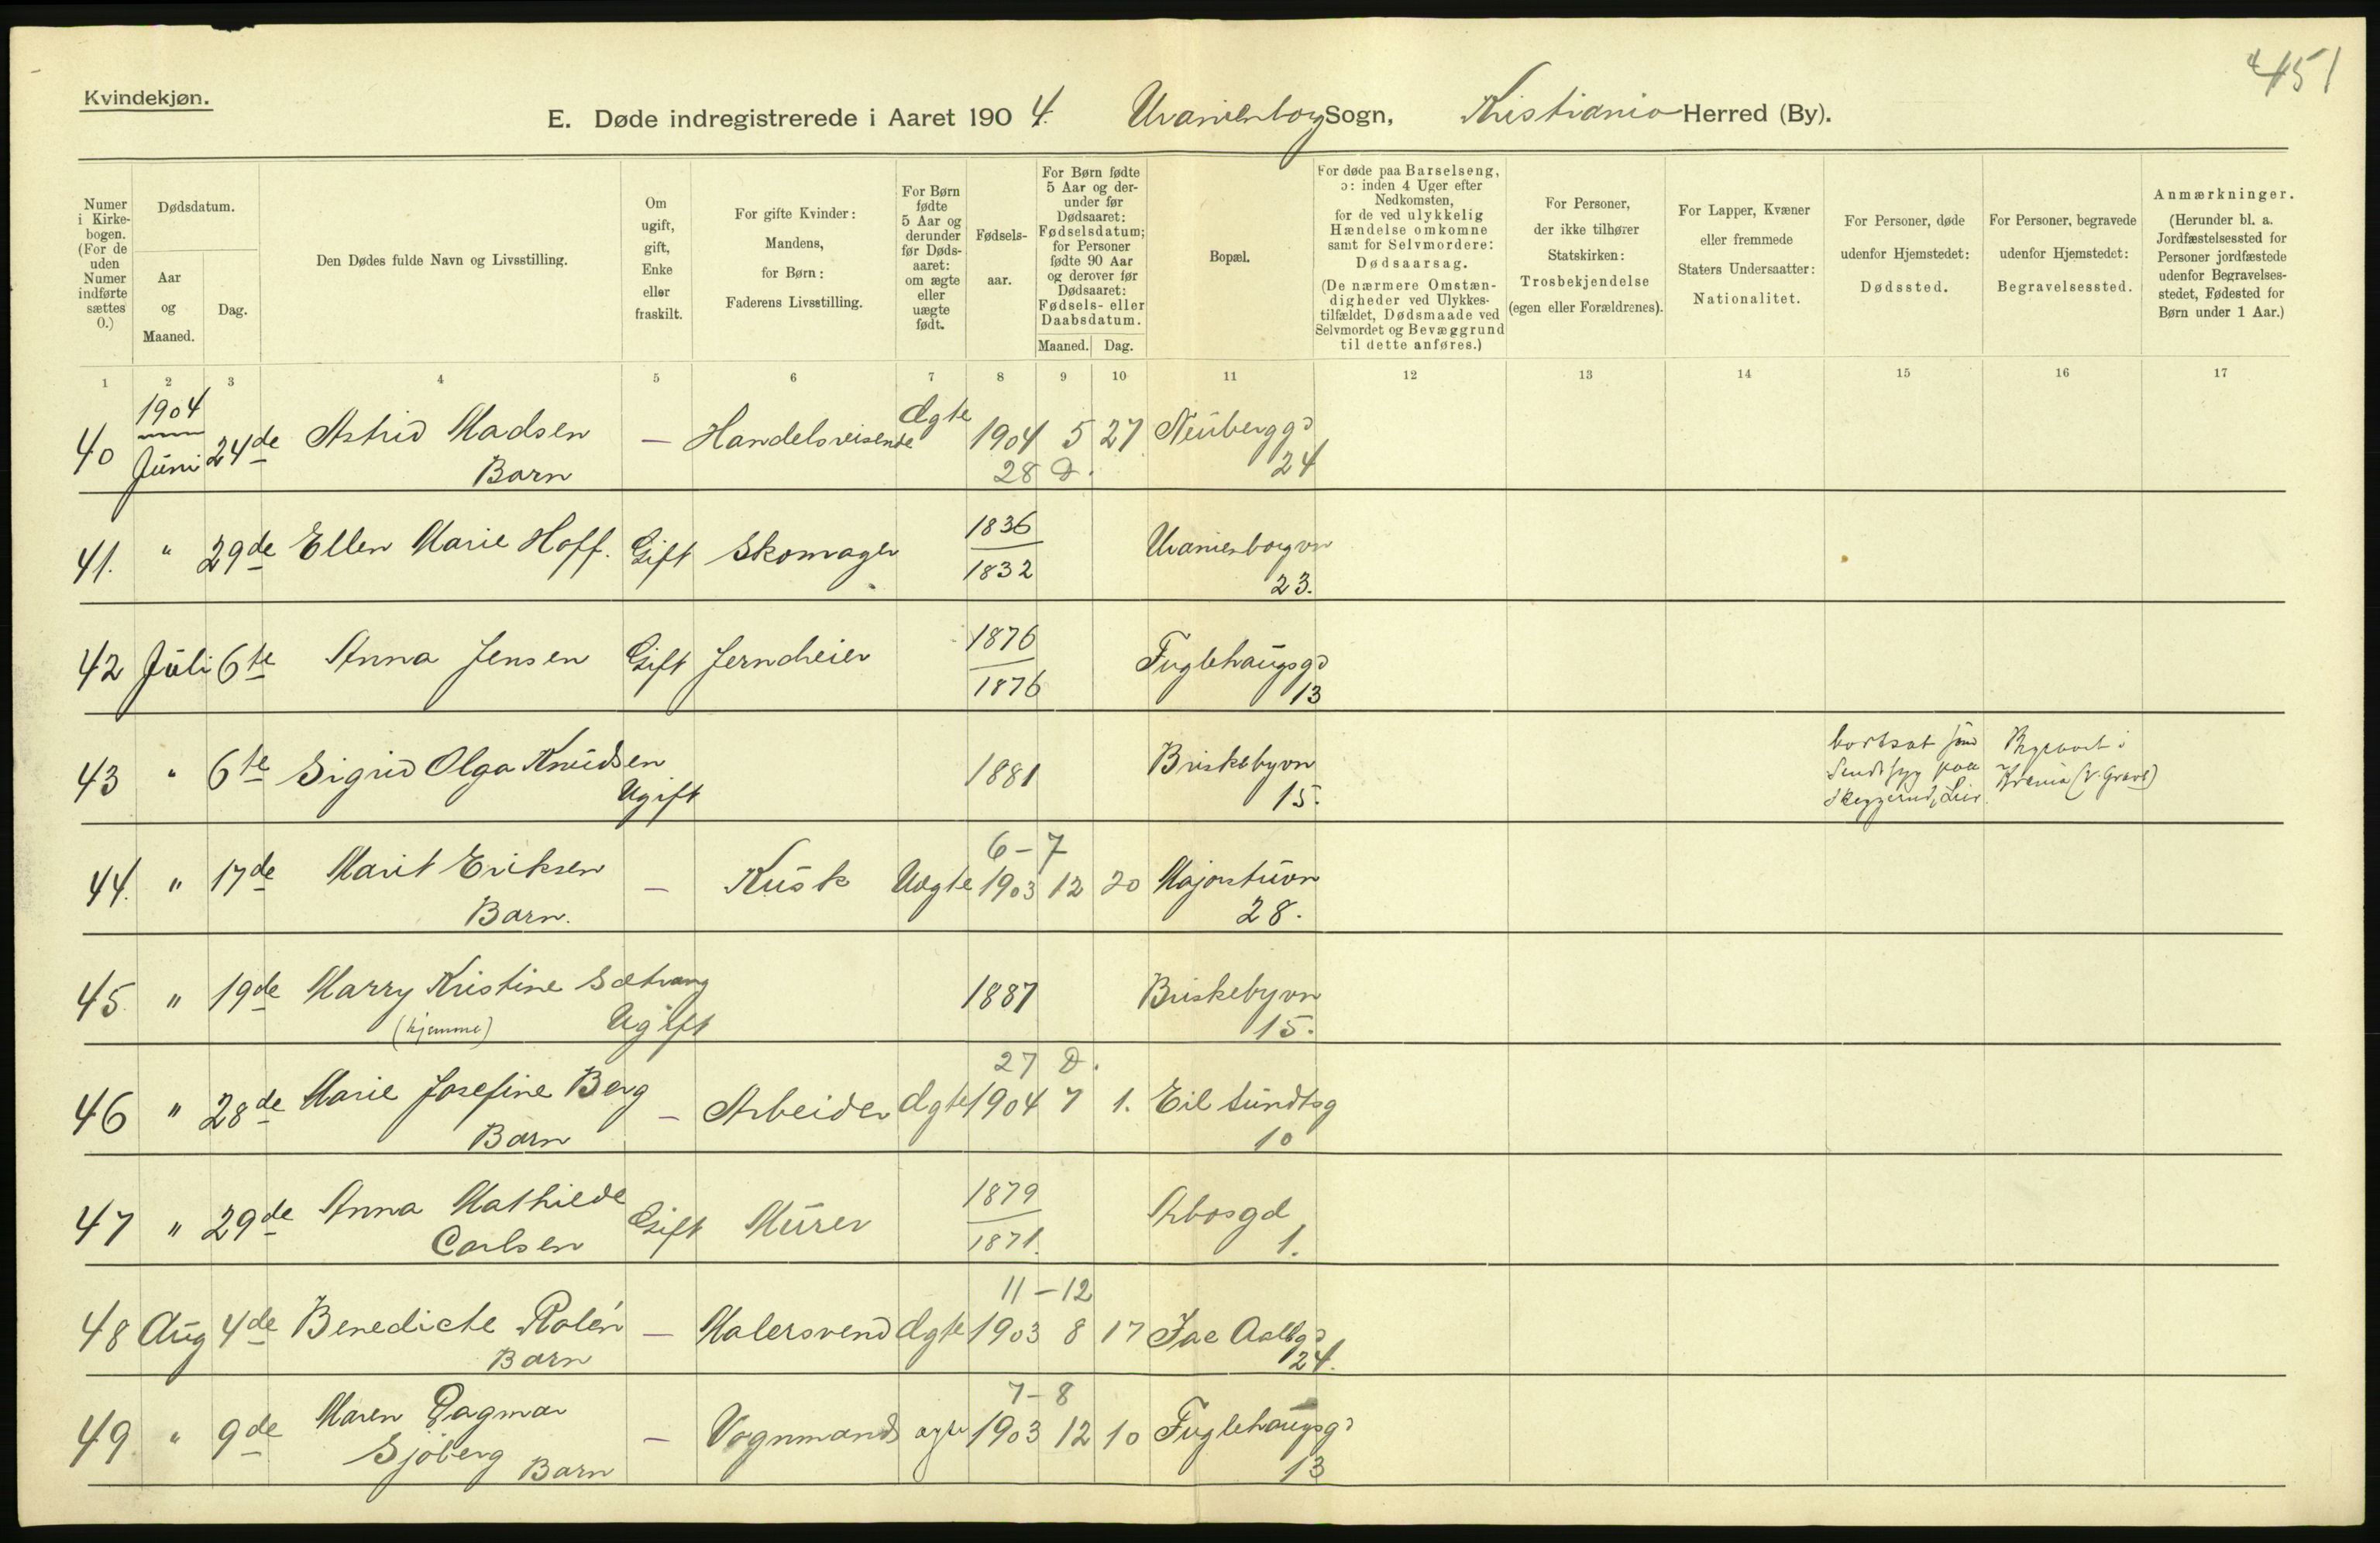 451
Kvindekjøn.
E. Døde indregistrerede i Aaret 1904. Uranienborg Sogn, Kristiania Herred (By).
Numer i Kirke-bogen. (For de uden Numer indførte sættes 0.)
Dødsdatum.
Aar og Maaned.
Dag.
Den Dødes fulde Navn og Livsstilling.
Om ugift, gift, Enke eller fraskilt.
For gifte Kvinder: Mandens, for Børn: Faderens Livsstilling.
For Børn fødte 5 Aar og derunder før Døds-aaret: om ægte eller uægte født.
Fødsels-aar.
For Børn fødte 5 Aar og der-under før Dødsaaret: Fødselsdatum; for Personer fødte 90 Aar og derover før Dødsaaret: Fødsels- eller Daabsdatum.
Maaned. Dag.
Bopæl.
For døde paa Barselseng, ɔ: inden 4 Uger efter Nedkomsten, for de ved ulykkelig Hændelse omkomne samt for Selvmordere: Dødsaarsag. (De nærmere Omstæn-digheder ved Ulykkes-tilfældet, Dødsmaade ved Selvmordet og Bevæggrund til dette anføres.)
For Personer, der ikke tilhører Statskirken: Trosbekjendelse (egen eller Forældrenes).
For Lapper, Kvæner eller fremmede Staters Undersaatter: Nationalitet.
For Personer, døde udenfor Hjemstedet: Dødssted.
For Personer, begravede udenfor Hjemstedet: Begravelsessted.
Anmærkninger. (Herunder bl. a. Jordfæstelsessted for Personer jordfæstede udenfor Begravelses-stedet, Fødested for Børn under 1 Aar.)
1 2 3 4 5 6 7 8 9 10 11 12 13 14 15 16 17
1904
40 Juni 24de Astrid Madsen — Handelsreisende ægte 1904 5 27 Neubergg
Barn 28 D. 24
41. " 29de Ellen Marie Hoff. Gift Skomager 1836 Uranienborgvn
1832 23.
42 Juli 6te Anna Jensen Gift Jerndreier 1876 Fuglehaugsgd
1876 13
43 " 6te Sigrid Olga Knudsen 1881 Briskebyvn
Ugift 15.
bortsat som
Sindssyg paa
Skeggerud, Lier.
Begravet i
Krania (V. Gravl)
6 - 7
44. " 17de Marit Eriksen — Kusk Uægte 1903 12 20 Majorstuvn
Barn. 28.
45 " 19de Marry Kristine Sætrang 1887 Briskebyvn
(hjemme) Ugift 15.
27 D.
46 " 28de Marie Josefine Berg — Arbeider ægte 1904 7 1. Eil Sundtsg
Barn 10
47 " 29de Anna Mathilde Gift Murer 1879 Arbosgd
Carlsen 1871. 1.
11 - 12
48 Aug 4de Benedicte Rolén — Malersvend ægte 1903 8 17 Jac Aallgd
Barn 24.
7 - 8
49 " 9de Maren Dagmar — Vognmand ægte 1903 12 10 Fuglehaugsgd
Sjöberg Barn 13